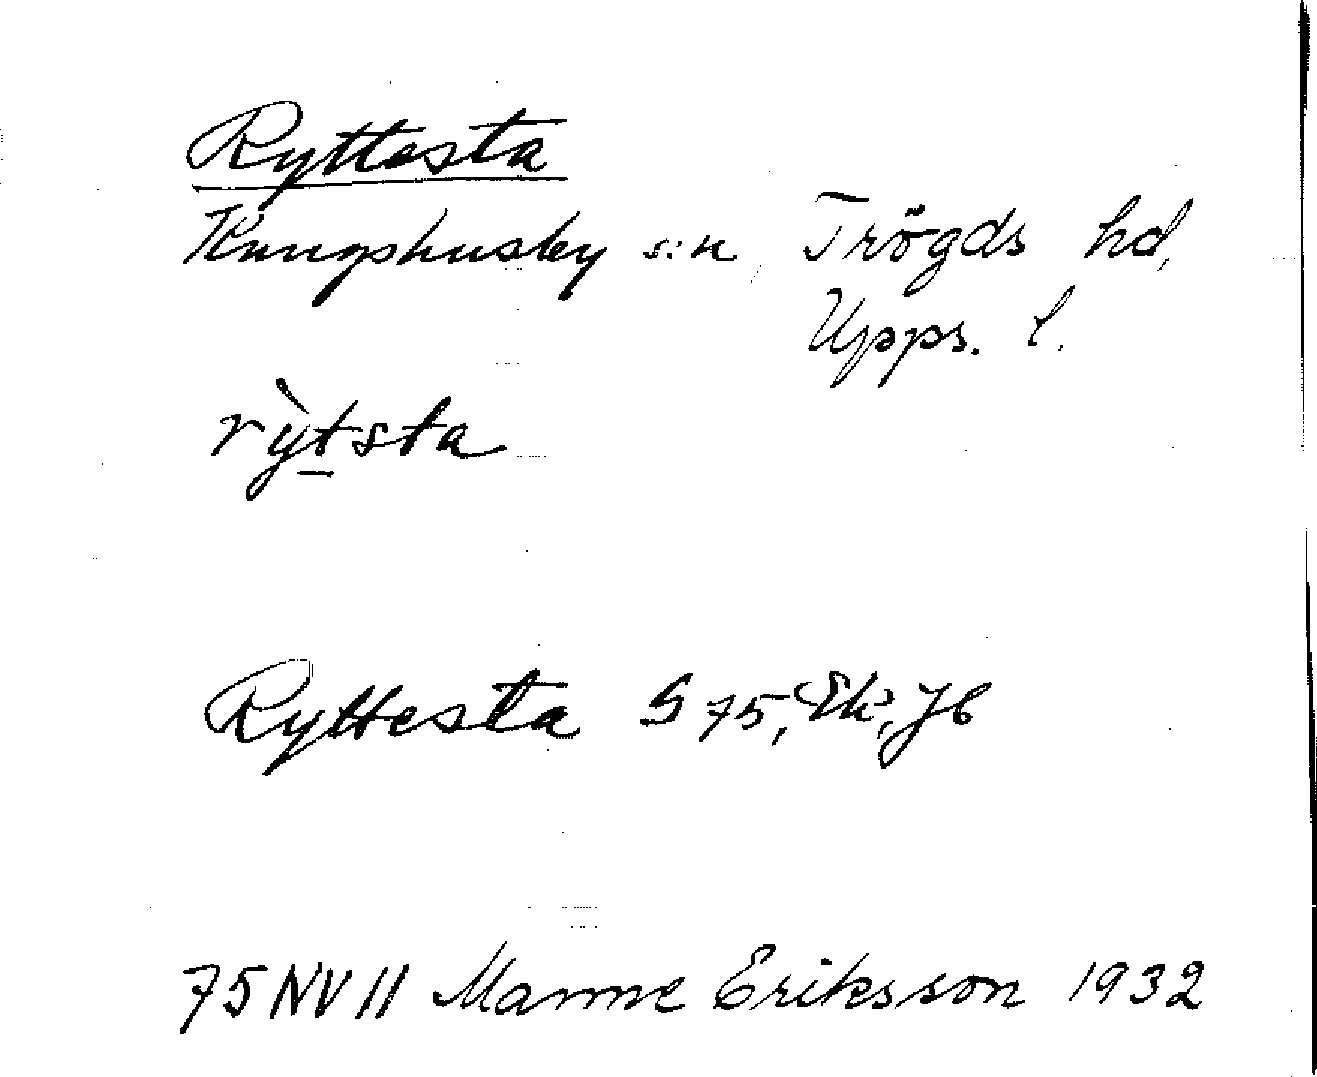 Ryttesta
Kungshusby s:n, Trögds hd,
Upps. l.
rỳtsta
Ryttesta G 75, Ek, Jb
75 NV 11 Manne Eriksson 1932